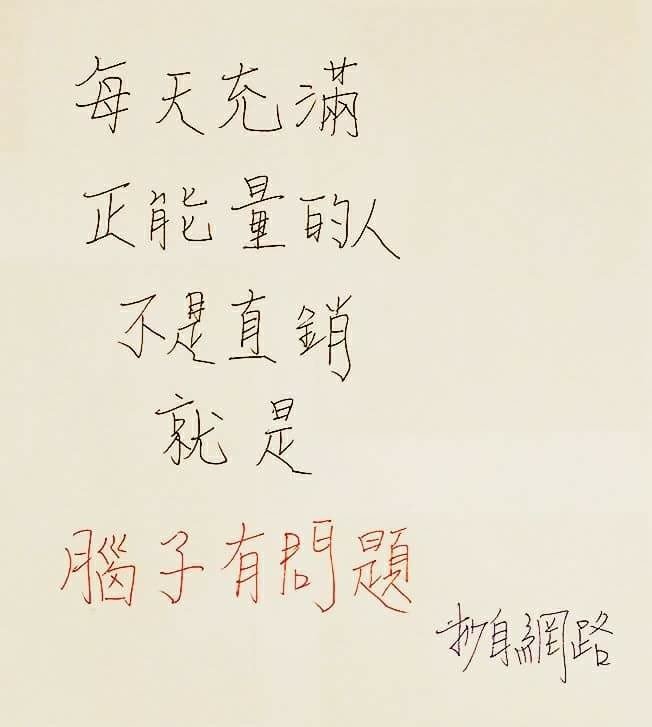 每天充滿
正能量的人
不是直銷
就是
腦子有問題
抄自網路